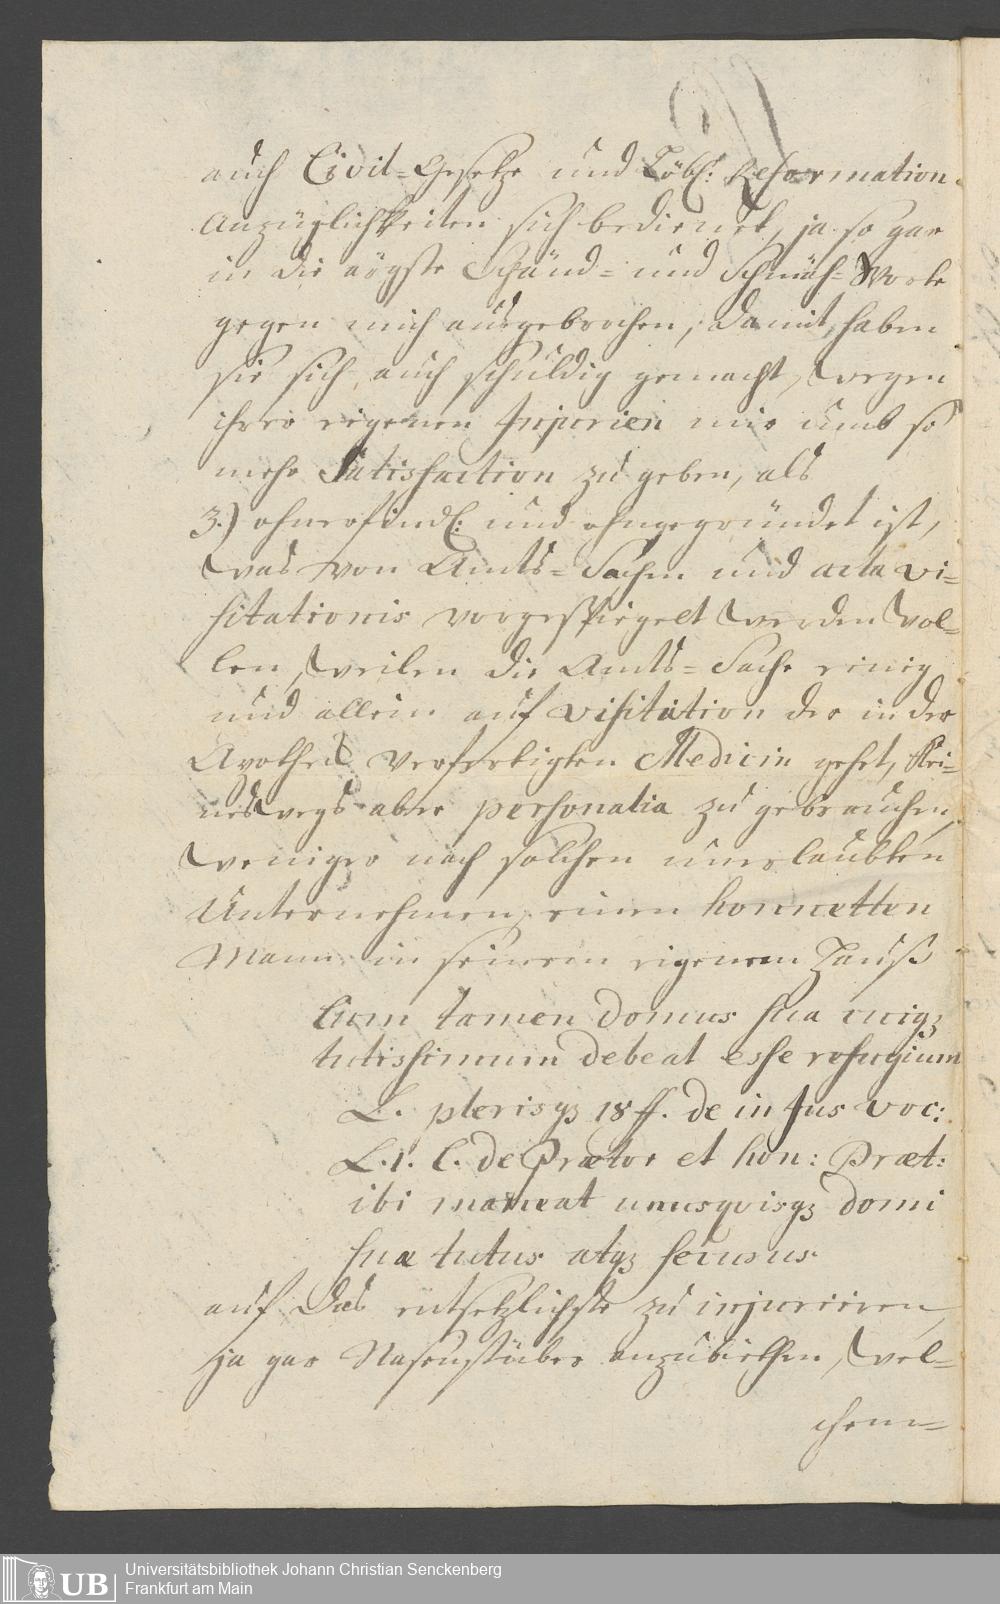 auch Civil-Gesetze und Löbl: Reformation
Anzüglichkeiten sich bedienet, ja so gar
in die ärgste Schand- und Schmäh-Worte
gegen mich ausgebrochen, damit haben
sie sich auch schuldig gemacht, wegen
ihrer eigenen Injurien mir umb so
mehr Satisfaction zu geben, als
3.) ohnerfindl: und ohngegründet ist,
was von Amts-Sachen und acta vi-
sitationis vorgespiegelt werden wol-
len, weilen die Amts-Sache einig
und allein auf visitation der in der
Apotheck verfertigten Medicin gehet, kei-
neswegs aber personalia zu gebrauchen,
weniger nach solchen unerlaubten
Unternehmen, einen honnetten
Mann in seinem eigenen Hauß
Cum tamen domus sua cuiqꝫ
tutissimum debeat esse refugium
L. plerisqꝫ 18 ff. de in Jus voc:
L. 1. C. de Prætor et hon: Præt:
ibi maneat unusqvisqꝫ domi
suæ tutus atqꝫ securus
auf das entsetzlichste zu injuriiren,
ja gar Nasenstüber anzubiethen, wel-
chem-
Universitätsbibliothek Johann Christian Senckenberg
Frankfurt am Main
UB